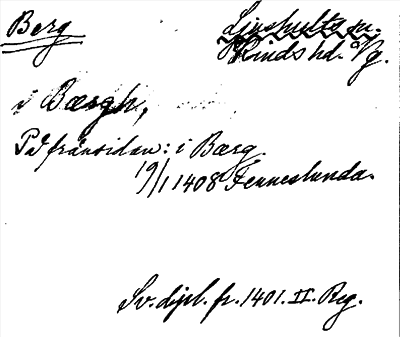 Berg
Ljushults sn.
Kinds hd. Vg.
i Bærgh,
På frånsidan: i Bærg
19/1 1408 Fenneslunda.
Sv. dipl. fr. 1401. II. Reg.